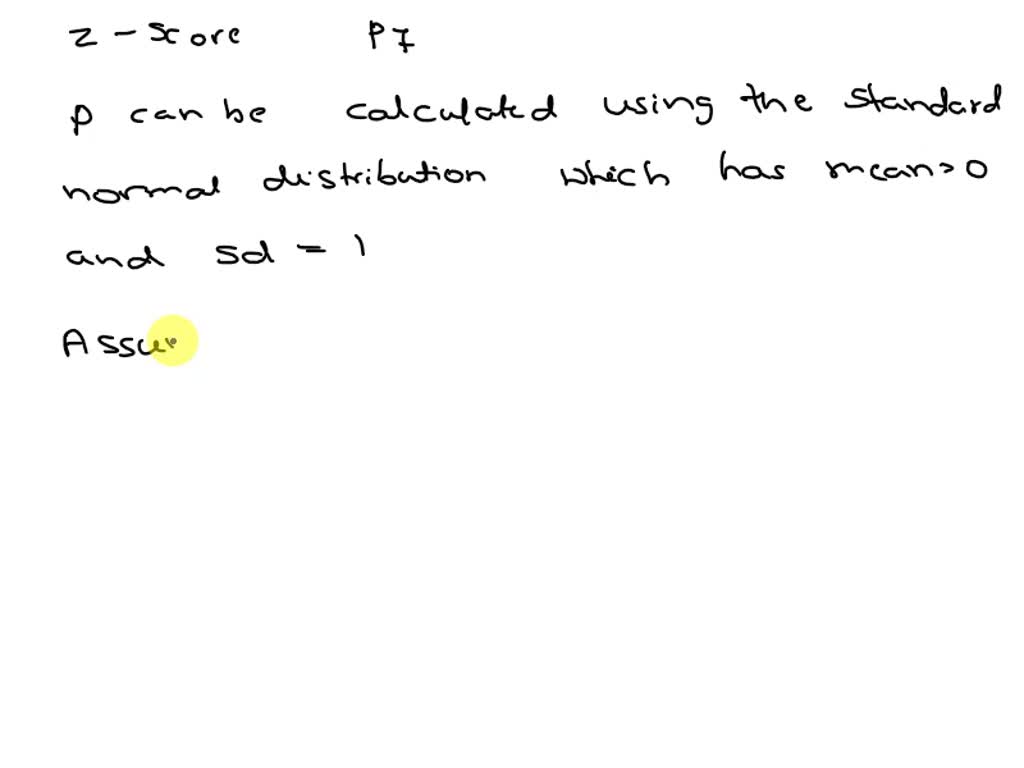 z - score P7
P can be calculated using the standard
normal distribution which has mean = 0
and sd = 1
Assu